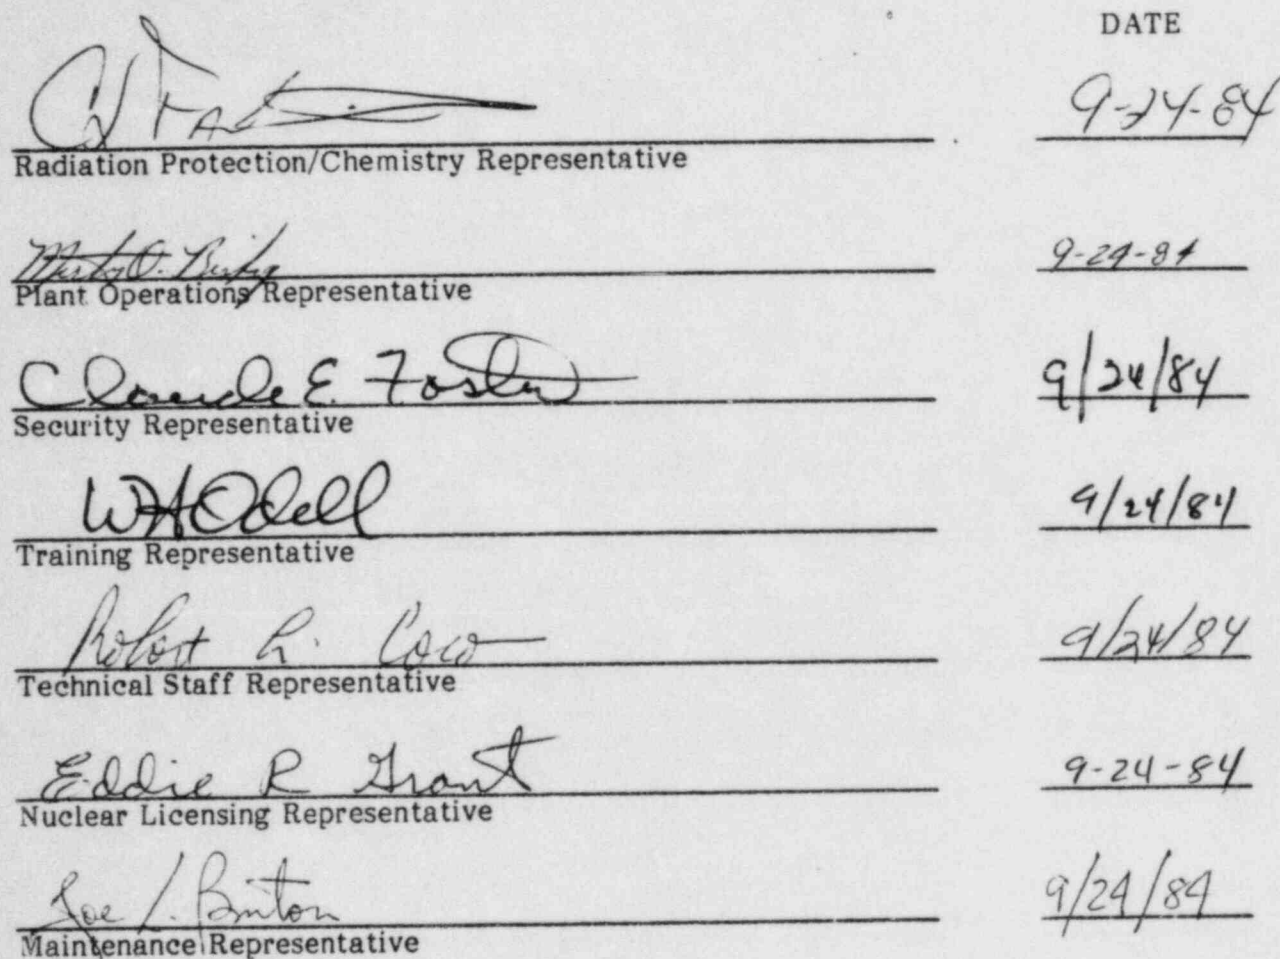 DATE
9-24-84
Radiation Protection/Chemistry Representative
9-24-84
Plant Operations Representative
Claude E. Foster 9/24/84
Security Representative
WHOdell 9/24/84
Training Representative
Robert R. Coco 9/24/84
Technical Staff Representative
Eddie R Grant 9-24-84
Nuclear Licensing Representative
Joe L. 9/24/84
Maintenance Representative